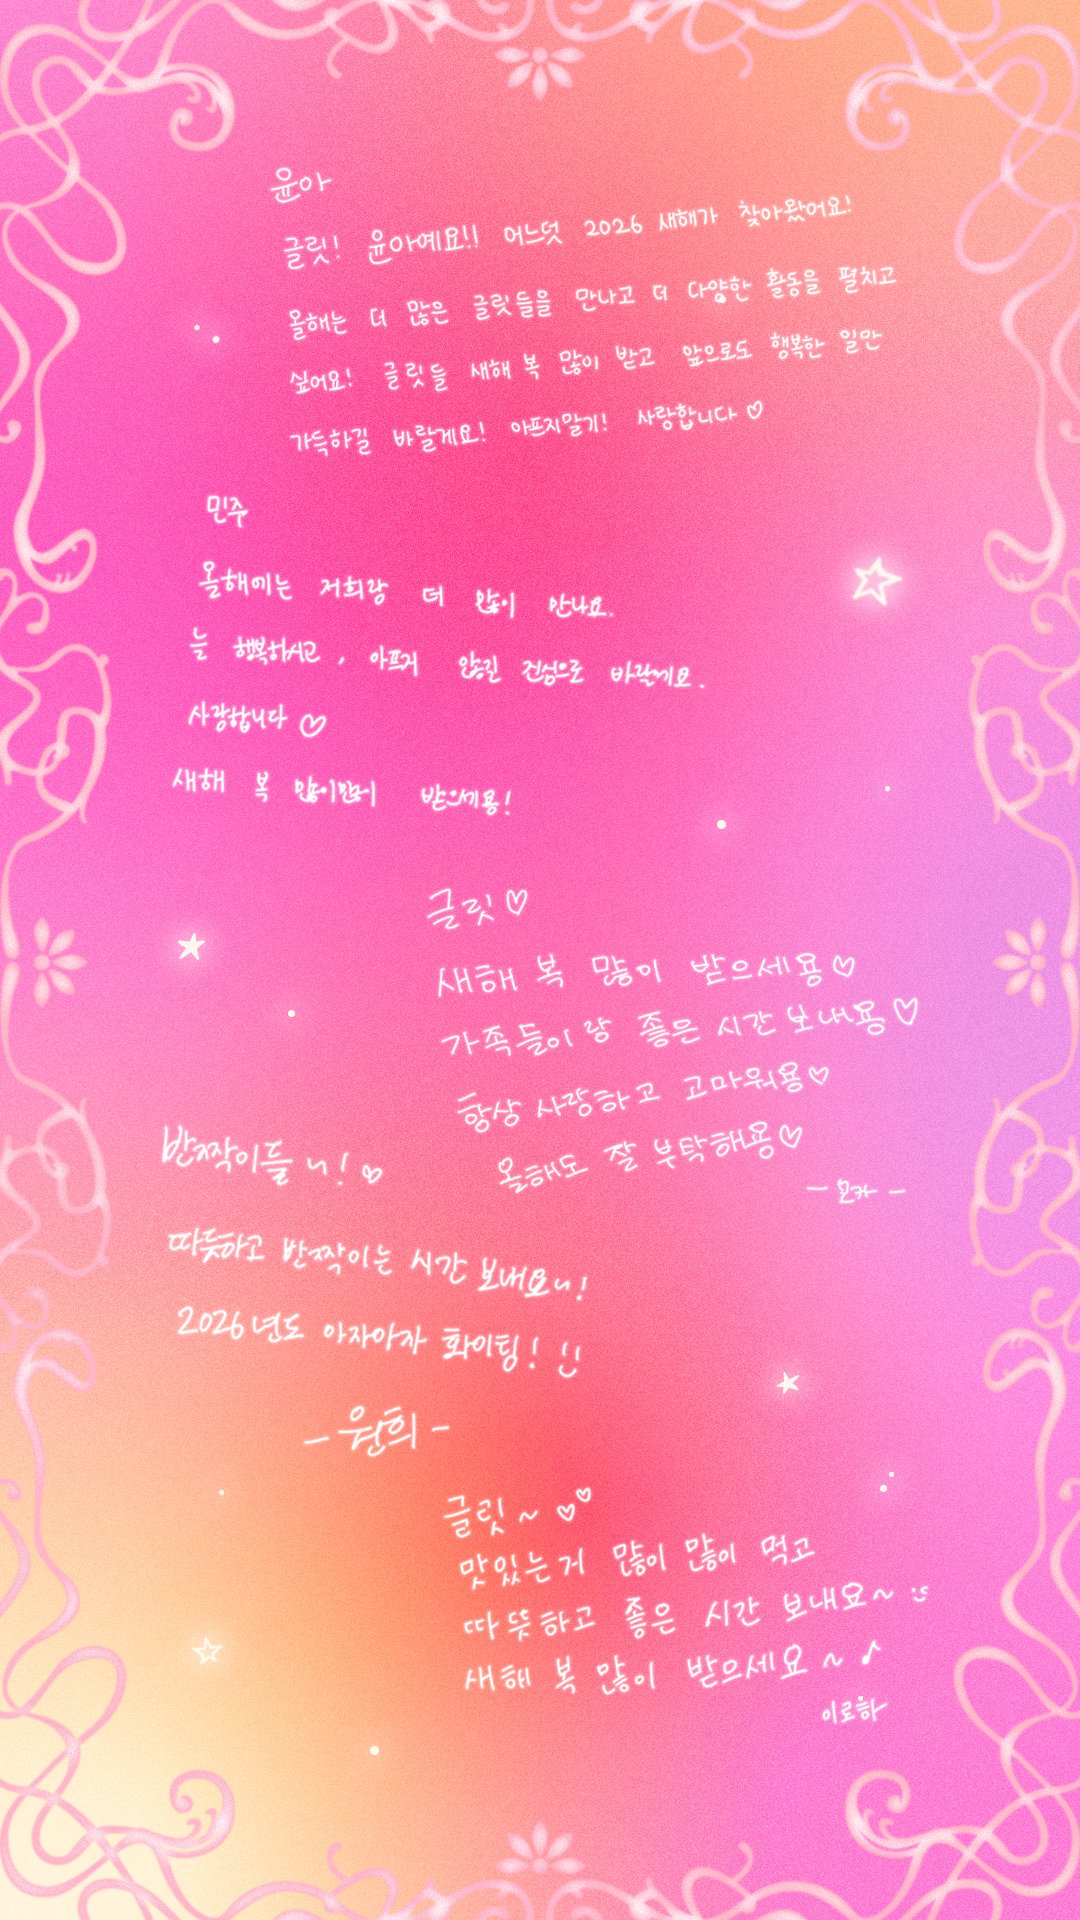 윤아
글릿! 윤아예요!! 어느덧 2026 새해가 찾아왔어요!
올해는 더 많은 글릿들을 만나고 더 다양한 활동을 펼치고
싶어요! 글릿들 새해 복 많이 받고 앞으로도 행복한 일만
가득하길 바랄게요! 아프지말기! 사랑합니다 ♡
민주
올해에는 저희랑 더 많이 만나요.
늘 행복하시고, 아프지 않길 진심으로 바랄게요.
사랑합니다 ♡
새해 복 많이만이 받으세용!
글릿 ♡
새해 복 많이 받으세용 ♡
가족들이랑 좋은 시간 보내용 ♡
항상 사랑하고 고마워용 ♡
올해도 잘 부탁해용 ♡
- 모카 -
반짝이들 ~! ♡
따듯하고 반짝이는 시간 보내요~!
2026년도 아자아자 화이팅! :)
- 원희 -
글릿 ~ ♡♡
맛있는거 많이 많이 먹고
따뜻하고 좋은 시간 보내요~ :)
새해 복 많이 받으세요 ~ ♪
이로하